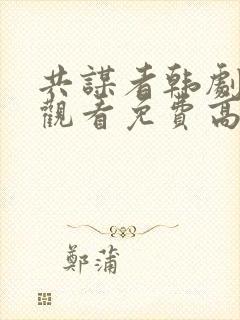 共謀者韩劇
觀看免費高
鄭蒲